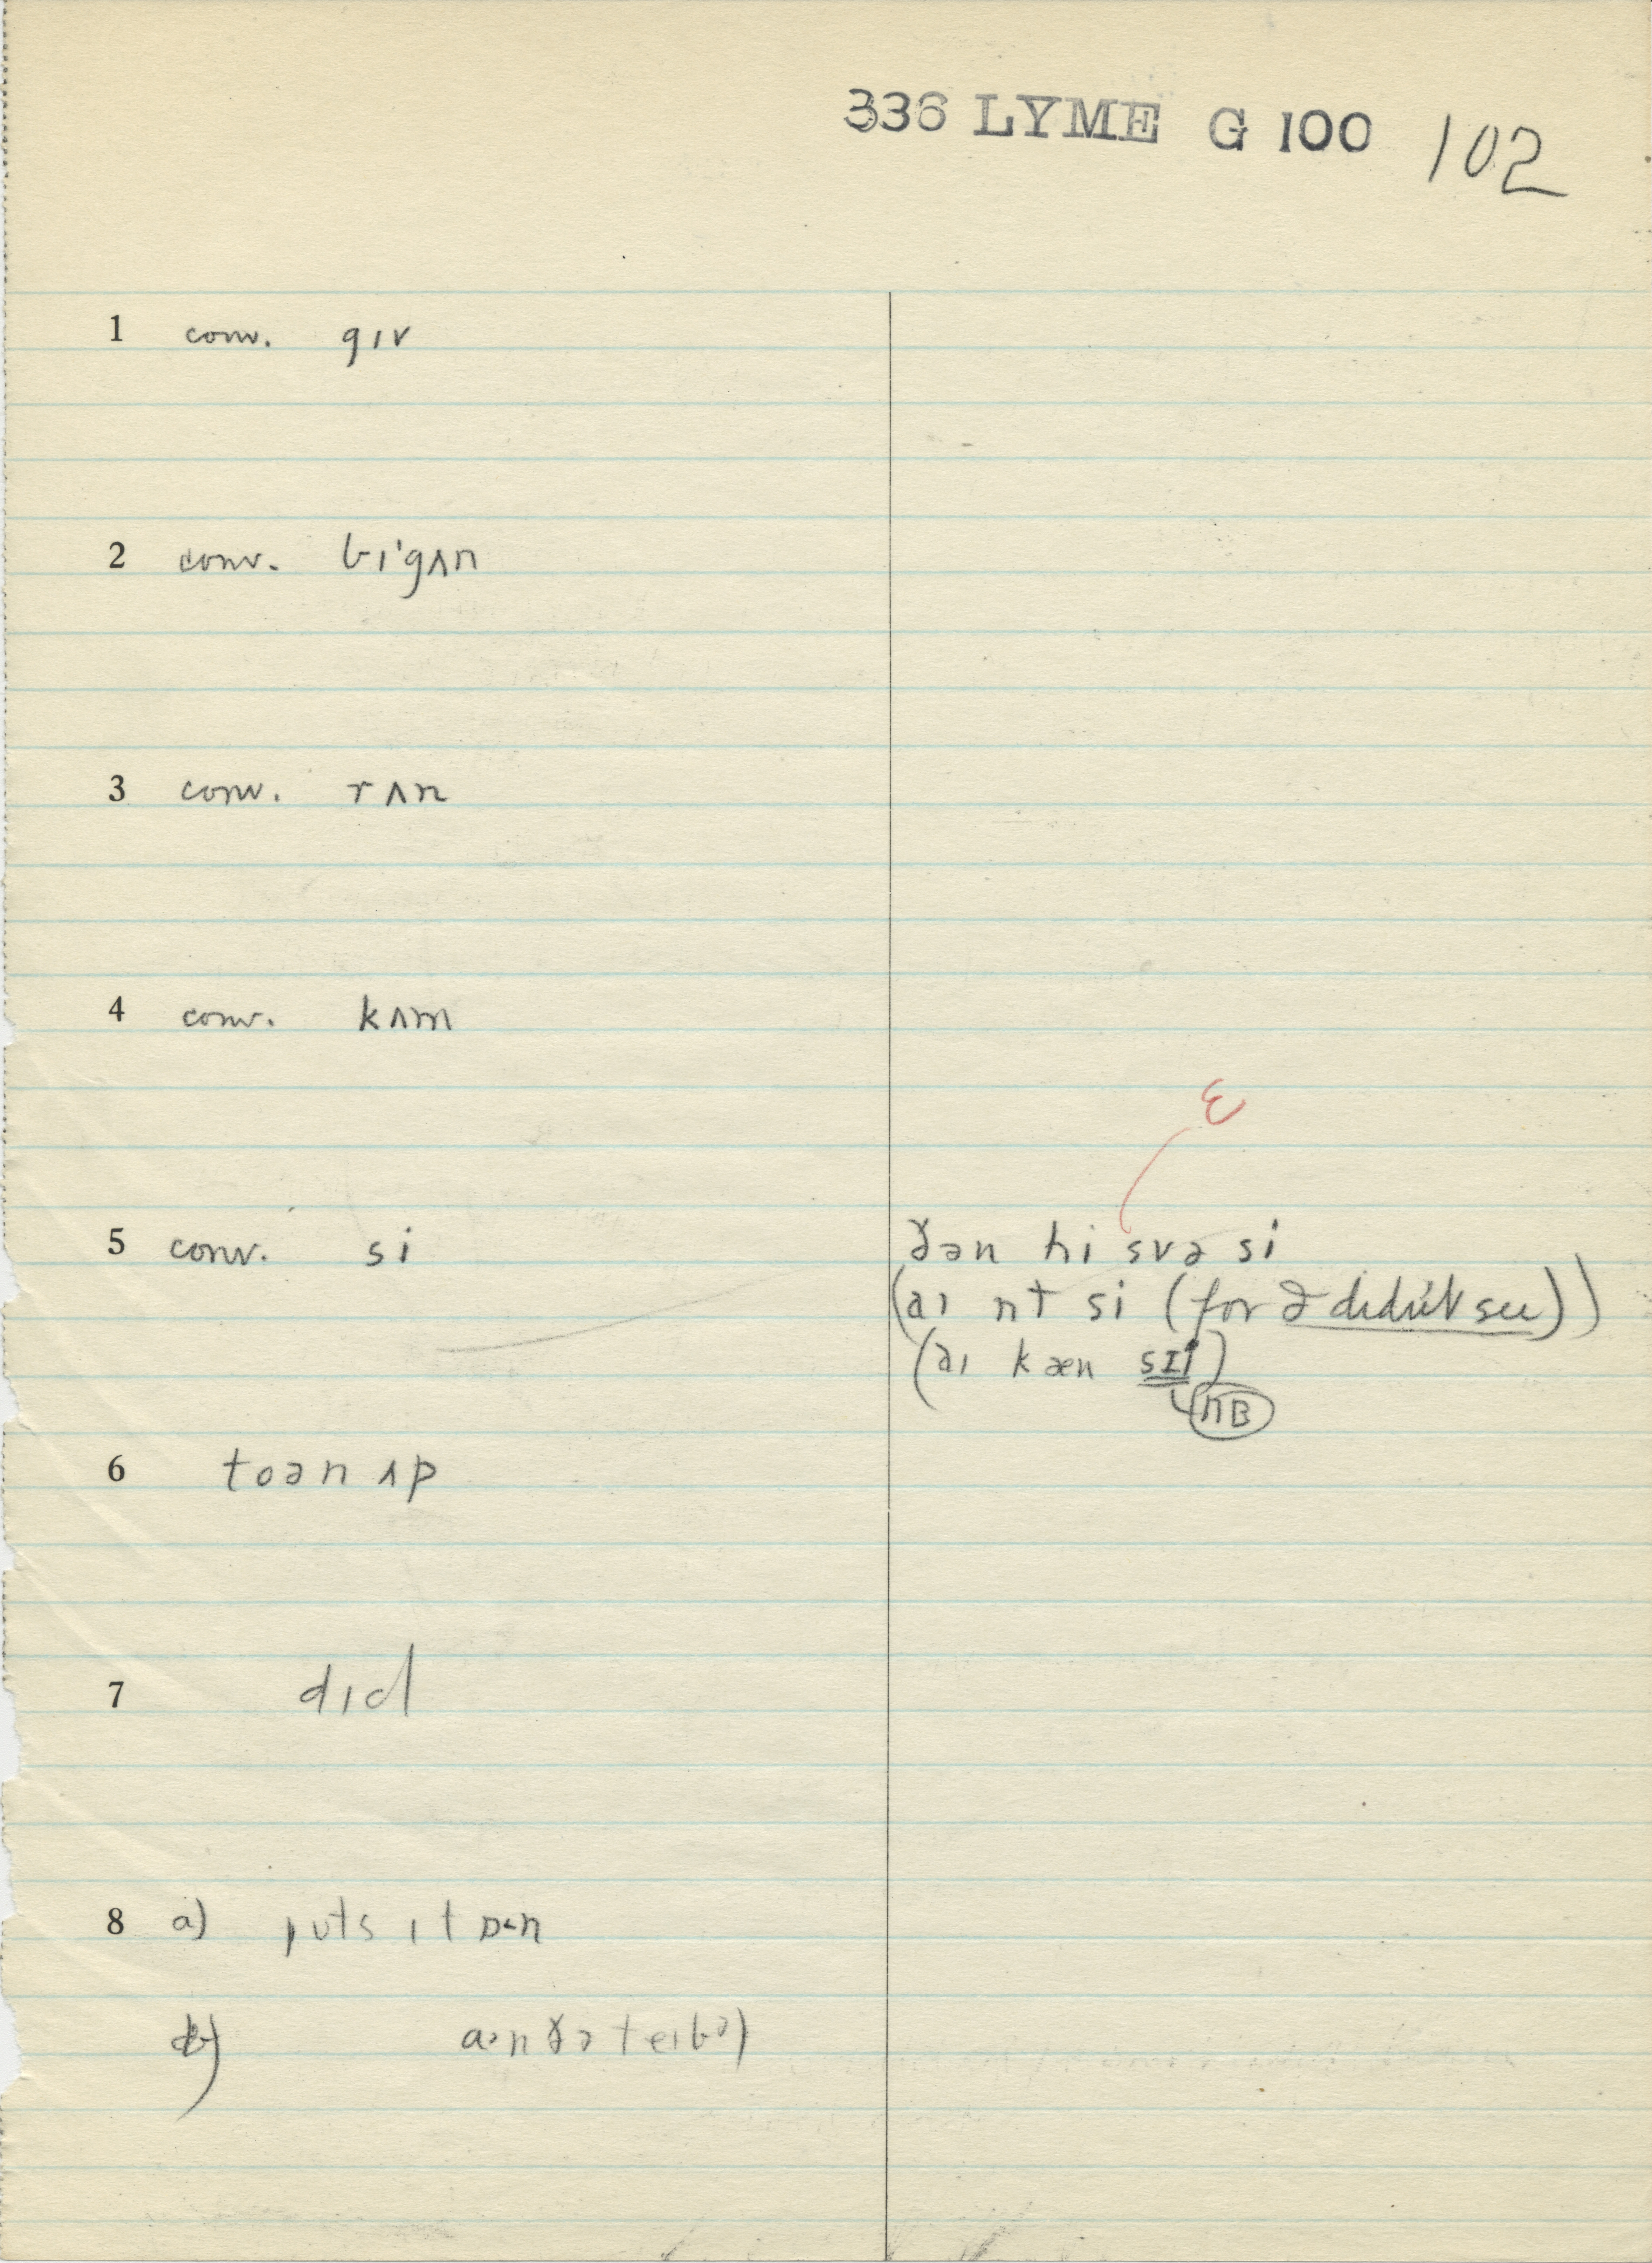 336 LYME G 100 102
1 conv. gɪv
2 conv. bɪ'gʌn
3 conv. rʌn
4 conv. kʌm
ɛ
5 conv. si ðən hi svə si
(aɪ nt si (for I didn't see))
(aɪ kæn sɪi)
NB
6 toən ʌp
7 dɪd
8 a) puts ɪt ɒn
b) ðə teɪbə)